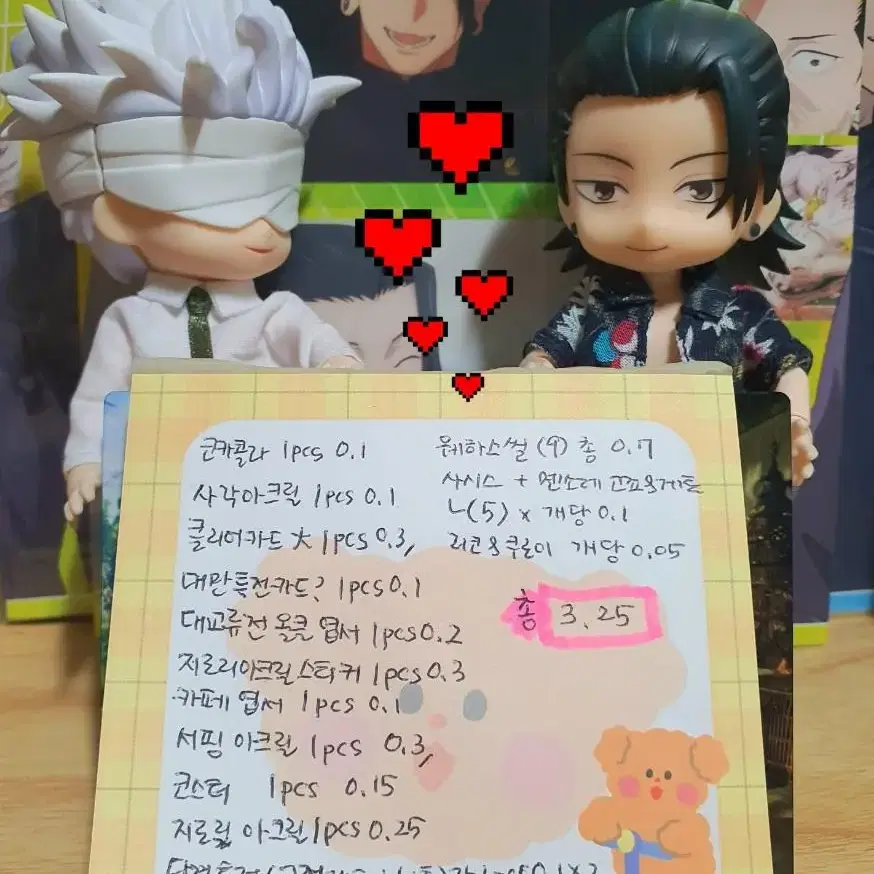 코카콜라 1pcs 0.1
사각아크릴 1pcs 0.1
클리어카드 大 1pcs 0.3,
대만특전카드? 1pcs 0.1
대교류전 올클 엽서 1pcs 0.2
지로리아크릴스티커 1pcs 0.3
카페 엽서 1pcs 0.1
서핑 아크릴 1pcs 0.3,
코스터 1pcs 0.15
지로릴 아크릴 1pcs 0.25
웨하스씰 (9) 총 0.7
사시스 + 멘소레
ㄴ(5) x 개당 0.1
개당 0.05
총 3.25